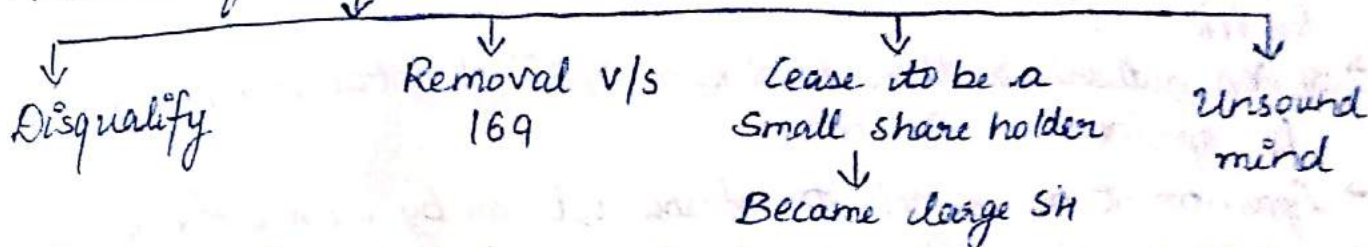 Disqualify
Removal v/s
169
Cease to be a
Small share holder
Became large SH
Unsound
mind